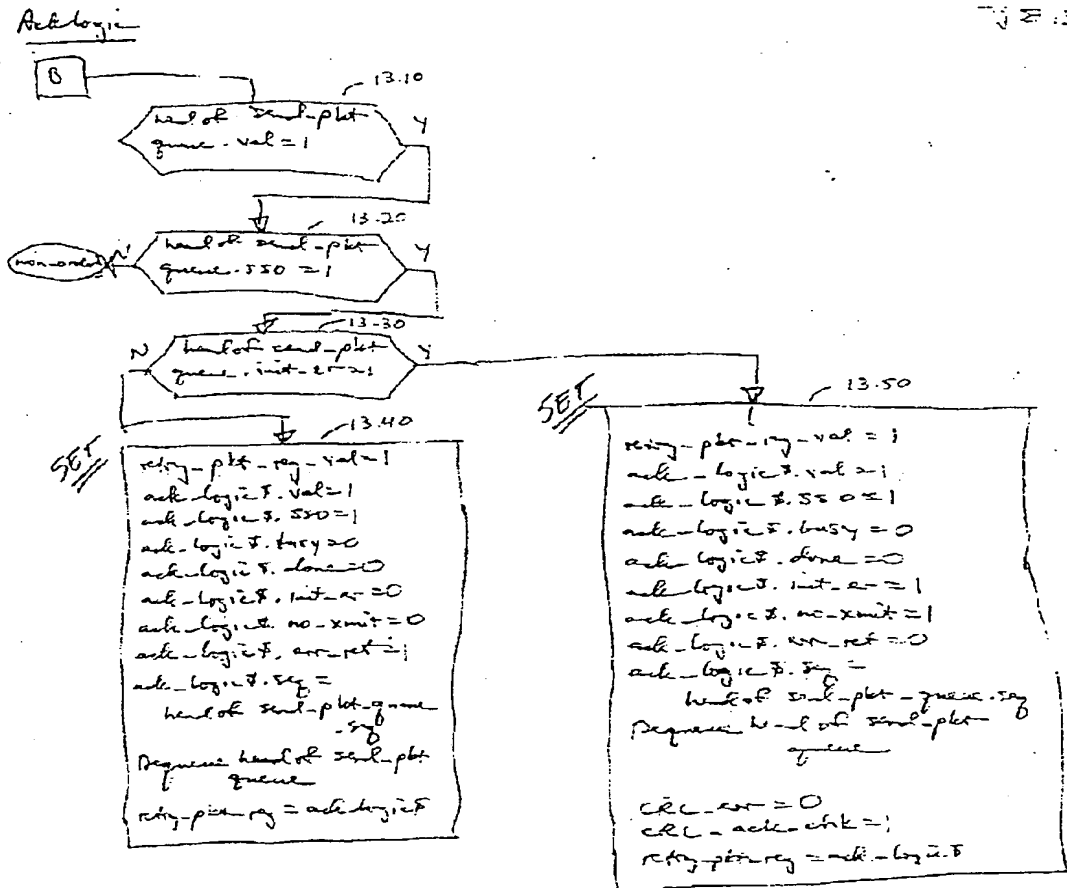 Ack Logic
B
13.10
head of send-pkt
queue.val=1
Y
13.20
head of send-pkt
queue.SSO =1
Y
N
non-order
13.30
head of send-pkt
queue.init_er=1
N
Y
SET
13.40
retry_pkt_reg_val=1
ack_logic$.val=1
ack_logic$.SSO=1
ack_logic$.busy=0
ack_logic$.done=0
ack_logic$.init_er=0
ack_logic$.no_xmit=0
ack_logic$.err_ret=1
ack_logic$.seq=
head of send-pkt-queue
.seq
Dequeue head of send-pkt
queue
retry_pkt_reg = ack_logic$
SET
13.50
retry_pkt_reg_val=1
ack_logic$.val=1
ack_logic$.SSO=1
ack_logic$.busy=0
ack_logic$.done=0
ack_logic$.init_er=1
ack_logic$.no_xmit=1
ack_logic$.err_ret=0
ack_logic$.seq=
head of send-pkt-queue.seq
Dequeue head of send-pkt
queue
CRC_err=0
CRC_ack_chk=1
retry_pkt_reg=ack_logic$